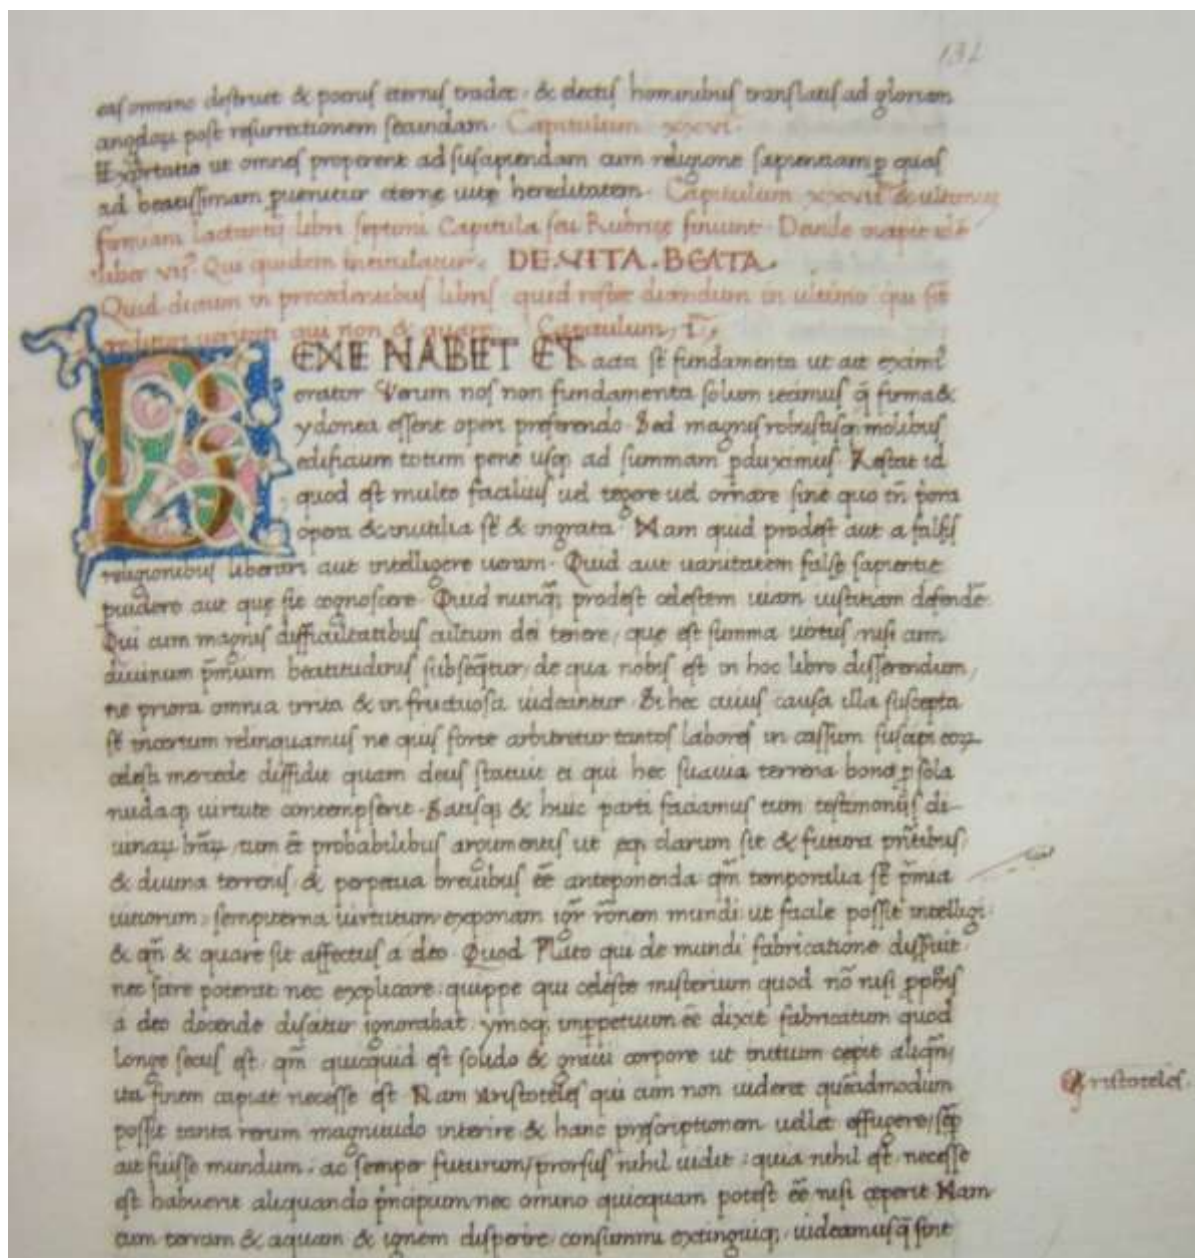 132
eas omnino destruet & penis eternis tradet · & electis hominibus translatis ad gloriam
angeloꝝ post resurrectionem secundam · Capitulum xxvi ·
Exortatio ut omnes properent ad suscipiendam cum religione sapientiam ꝑ quas
ad beatissimam puenitur eterne uite hereditatem · Capitulum xxvii & ultimum
firmiani lactantii libri septimi Capitula seu Rubrice finiunt · Deinde incipit
liber vii⁹ Qui quidem intitulatur · DE · VITA · BEATA ·
Quid dictum in precedentibus libris quid restet dicendum in ultimo qui sit
qui non & quare Capitulum, i,
acta st̄ fundamenta ut ait eximi⁹
orator Verum nos non fundamenta solum iecimus q̄ firma &
ydonea essent operi preferendo · Sed magnis robustisq; molibus
edificium totum pene usq; ad summam ꝑduximus · Restat id
quod est multo facilius uel tegere uel ornare sine quo tn̄ pora
opera & inutilia st̄ & ingrata · Nam quid prodest aut a falsis
religionibus liberari aut intelligere ueram · Quid aut uanitatem false sapientie
puidere aut que sit cognoscere · Quid nunq; prodest celestem uiam iustitiam defende
Qui cum magnis difficultatibus cultum dei tenere, que est summa uirtus, nisi cum
diuinum p̄mium beatitudinis subseq̄tur, de qua nobis est in hoc libro disserendum,
ne priora omnia irrita & infructuosa uideantur · Si hec cuius causa illa suscepta
st̄ incertum relinquamus ne quis forte arbitretur tantos labores in cassum suscipi eoꝝ
celesti mercede diffidit quam deus statuit ei qui hec suauia terrena bona ꝑ sola
nudaq; uirtute contempserit · Satisq; & huic parti faciamus tum testimoniis di-
uinaꝝ lr̄aꝝ, tum et̄ probabilibus argumentis ut eq; clarum sit & futura p̄ntibus,
& diuina terrenis, & perpetua breuibus ēē anteponenda qm̄ temporalia st̄ p̄mia
uitiorum, sempiterna uirtutum exponam igr̄ rōnem mundi ut facile possit intelligi
& qn̄ & quare sit affectus a deo · Quod Plato qui de mundi fabricatione disseruit
nec scire poterat nec explicare : quippe qui celeste misterium quod nō nisi
a deo docende discitur ignorabat · ymoq; inppetuum ēē dixit fabricatum quod
longe secus est · qm̄ quicquid est solido & graui corpore ut initium cepit aliqn̄,
ita finem capiat necesse est · Nam Aristoteles qui cum non uideret quēadmodum
possit tanta rerum magnitudo interire & hanc prescriptionem uellet effugere, sēp
ait fuisse mundum · ac semper futurum, prorsus nihil uidit : quia nihil est necesse
est habuerit aliquando p̄ncipium nec omnino quicquam potest ēē nisi ceperit Nam
cum terram & aquam & ignem disperire consummi extinguiq; uideamus q̄ sint
Aristoteles ·